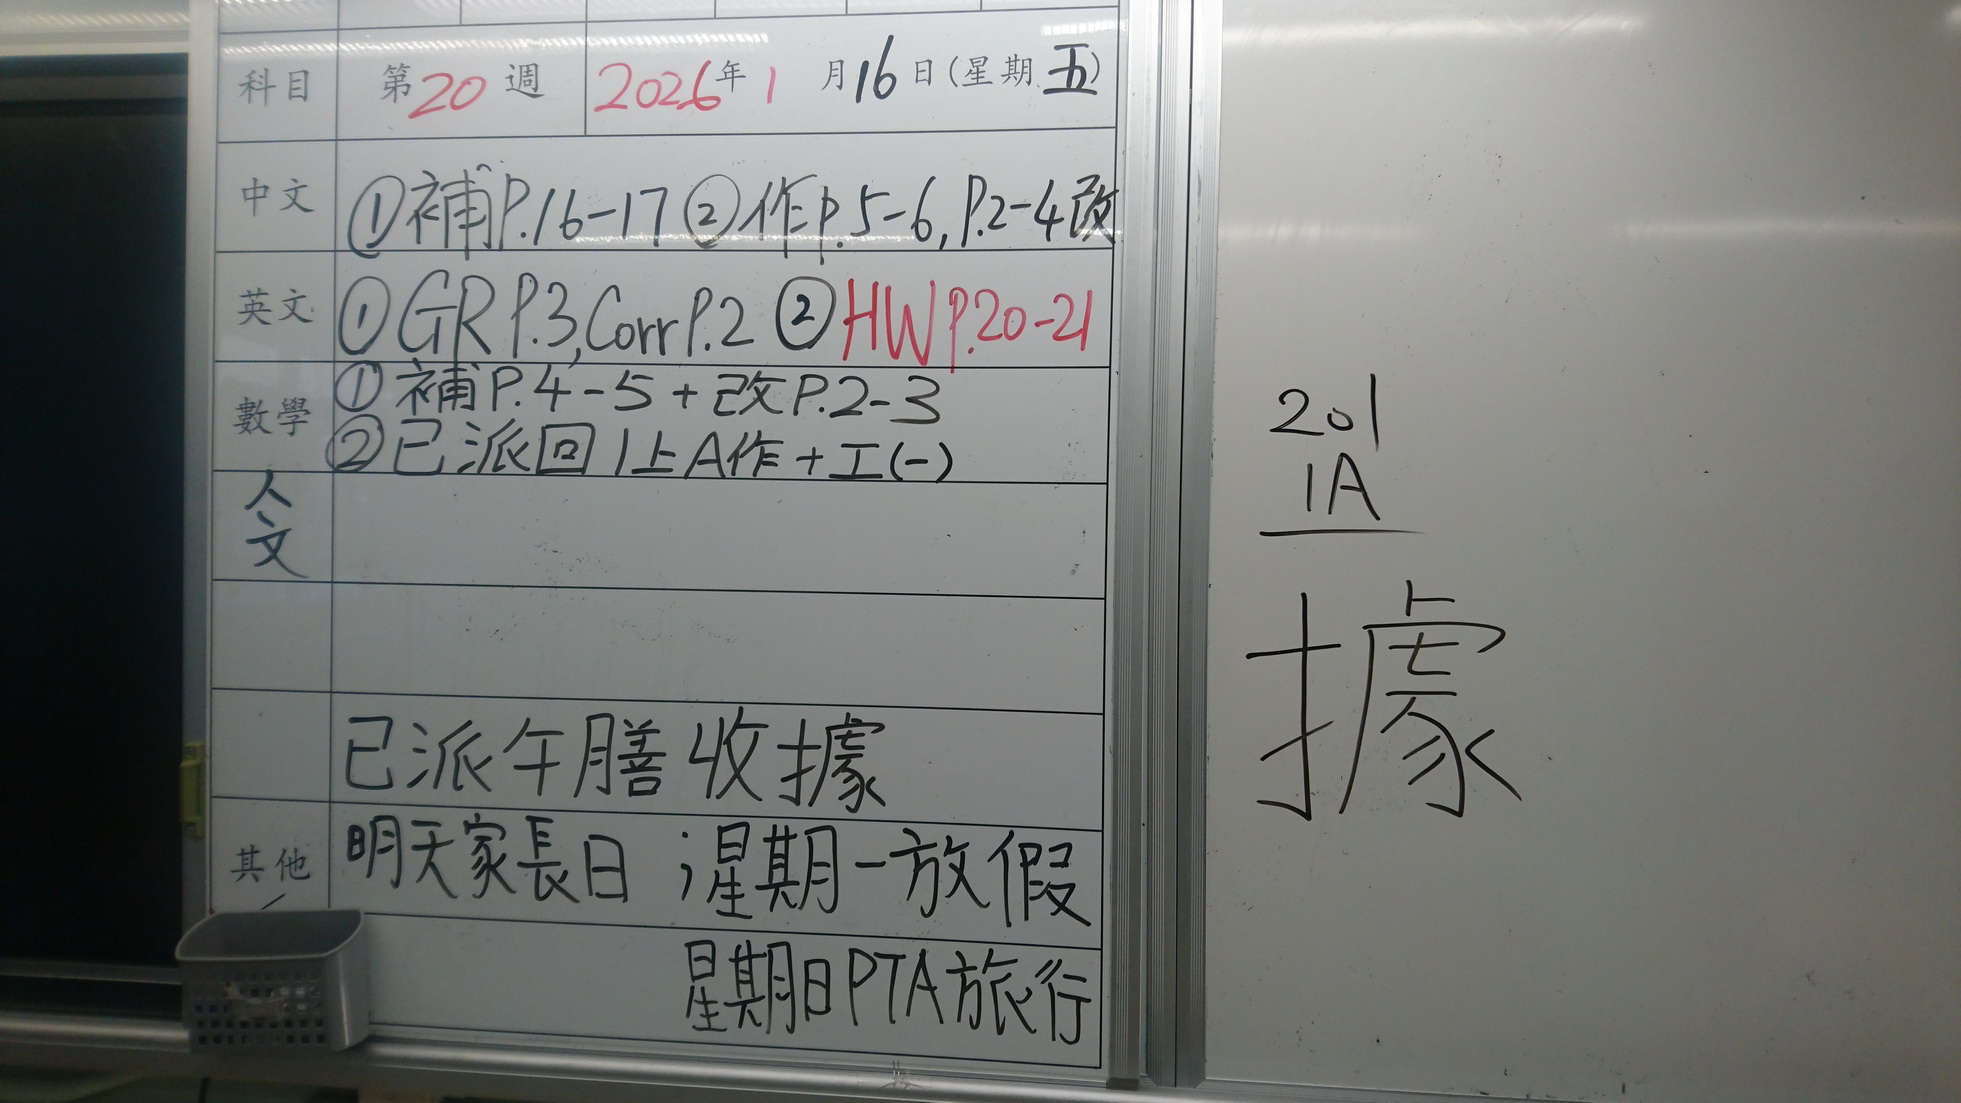 科目 第20週 2026年1月16日(星期五)
中文 ①補P.16-17 ②作P.5-6,P.2-4改
英文 ①GR P.3,Corr P.2 ②HW P.20-21
數學 ①補P.4-5+改P.2-3
②已派回1上A作+工(一)
人文
已派午膳收據
其他 明天家長日;星期一放假
星期日PTA旅行
201
1A
據